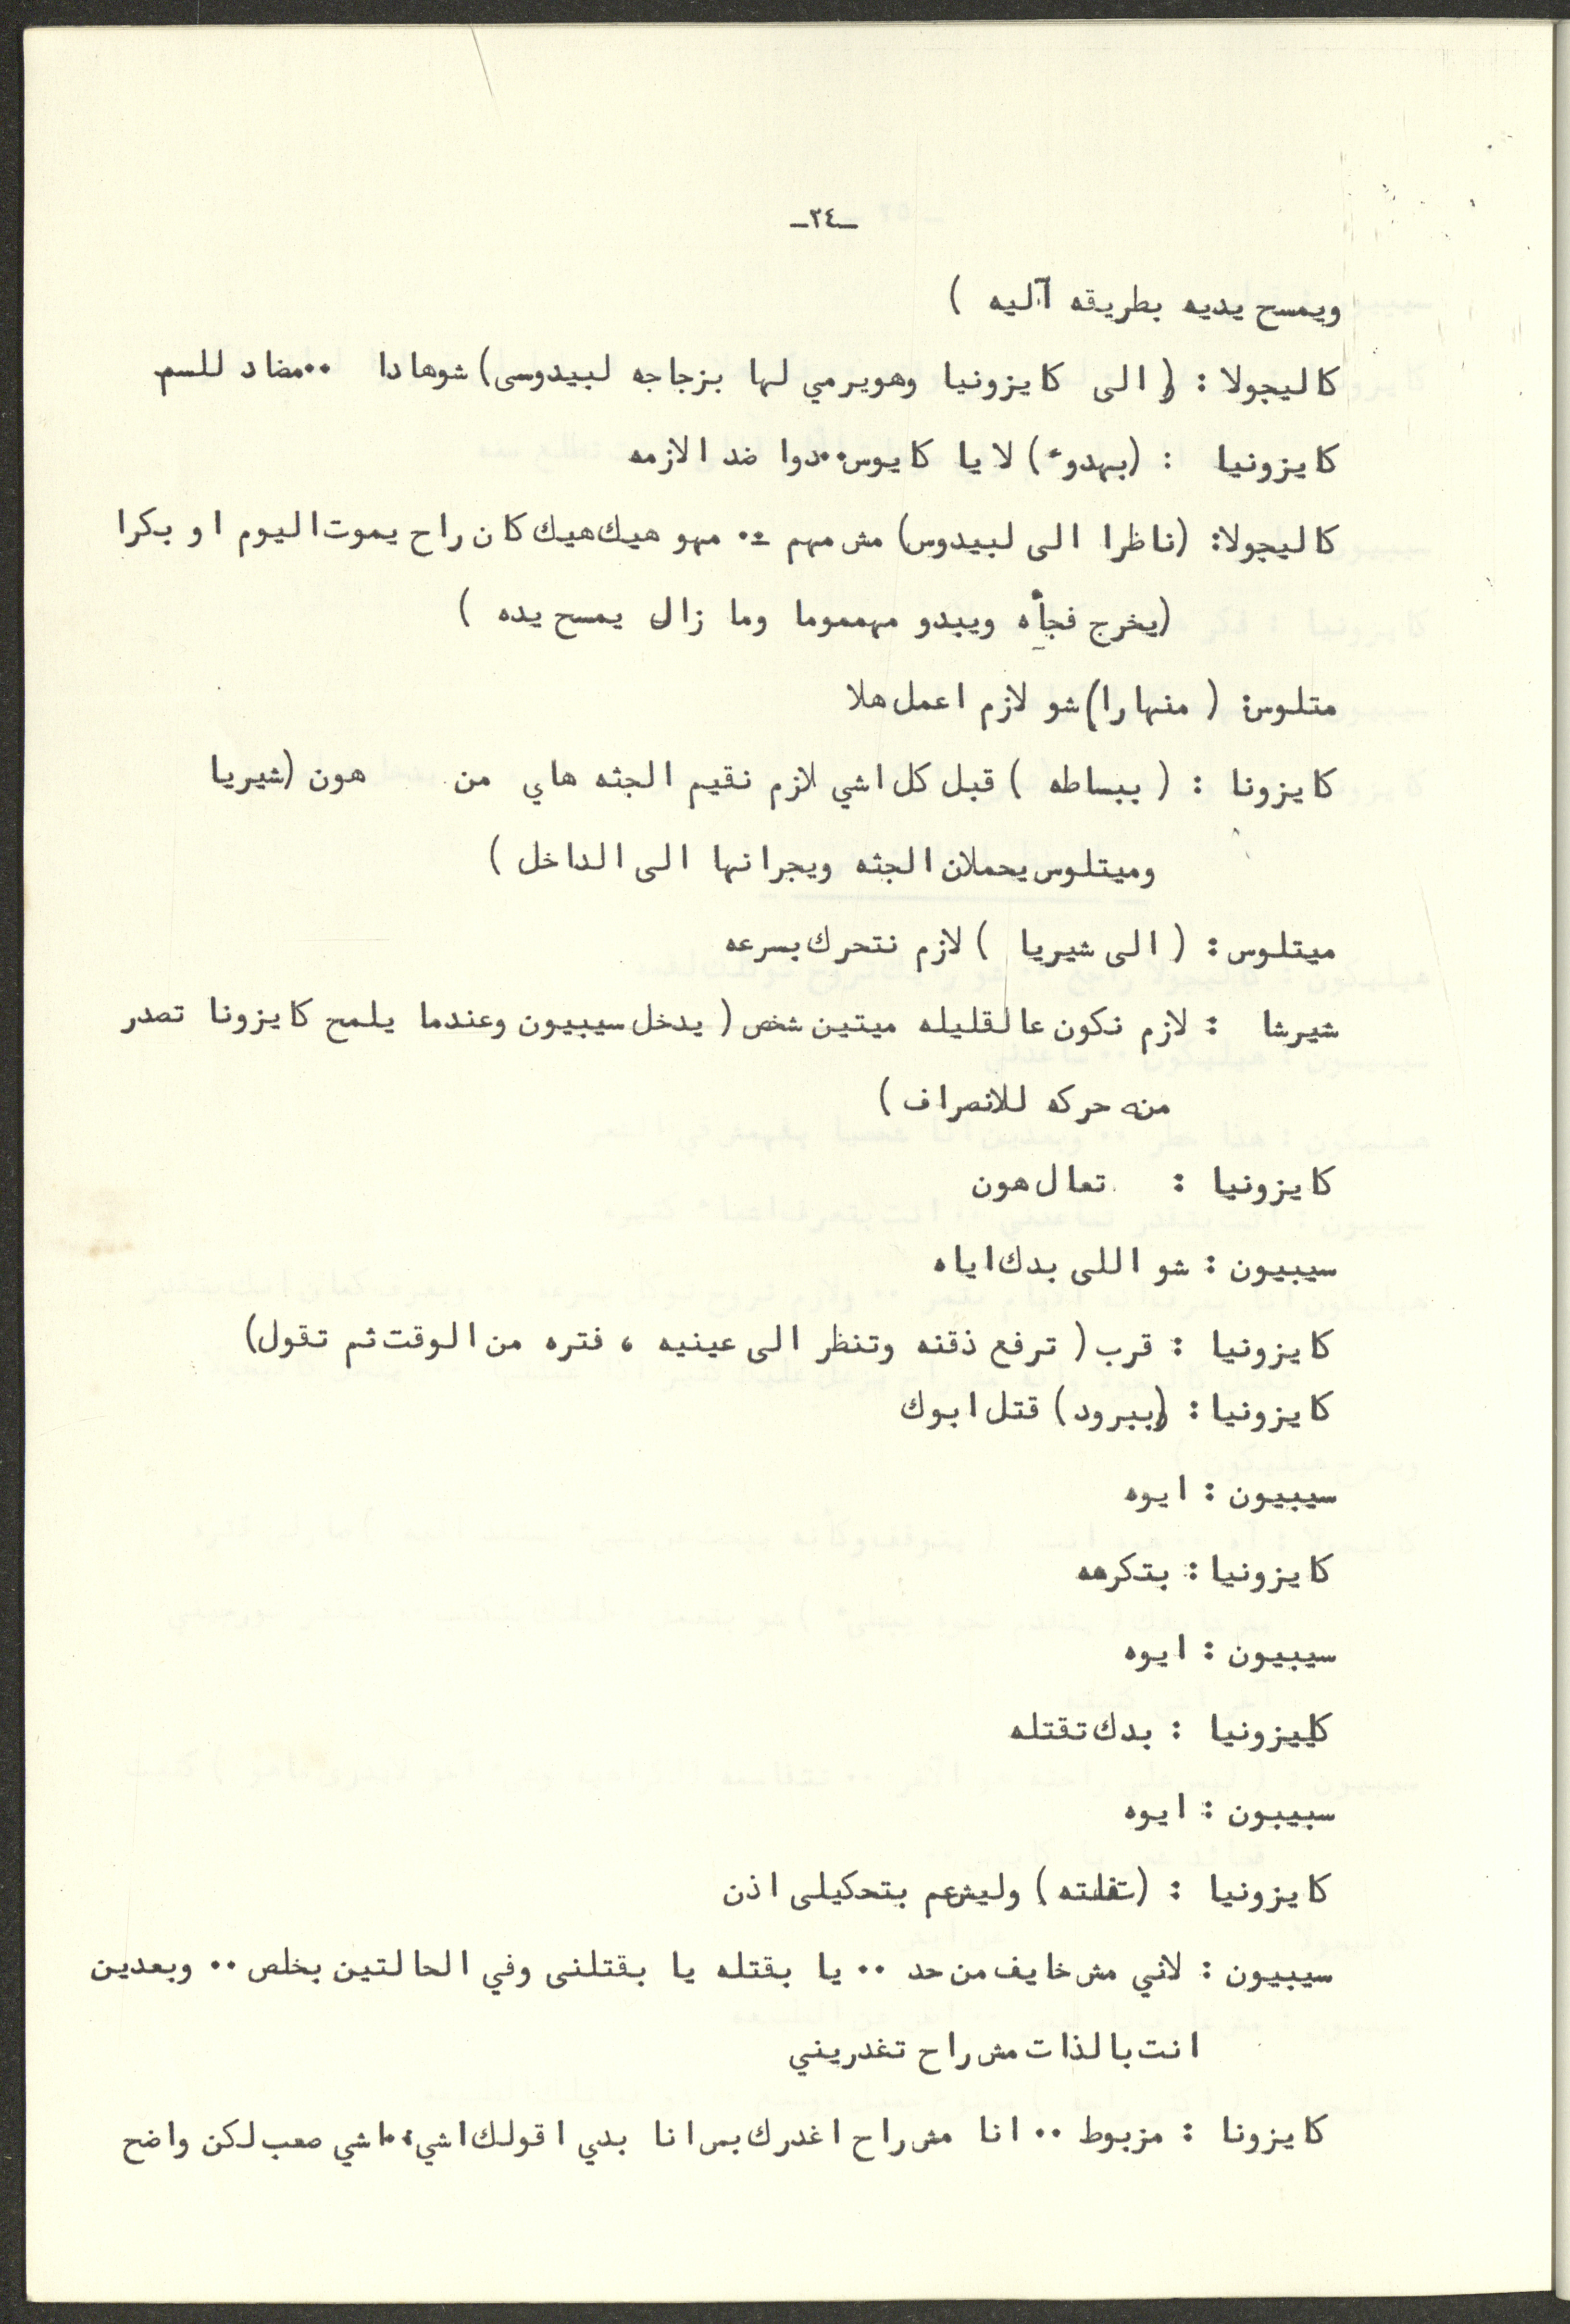 -٢٤-
ويمسح يديه بطريقه آليه )
كاليجولا : ( الى كايزونيا وهويرمي لها بزجاجه لبيدوسى) شوهادا ..مضاد للسم
كايزونيا : (بهدوء) لا يا كايوس..دوا ضد الازمه
كاليجولا: (ناظرا الى لبيدوس) مش مهم .. مهو هيك هيك كان راح يموت اليوم او بكرا
(يخرج فجأه ويبدو مهمموما وما زال يمسح يده )
متلوس: ( منهارا) شو لازم اعمل هلا
كايزونا : ( ببساطه ) قبل كل اشي لازم نقيم الجثه هاي من هون (شيريا
وميتلوس يحملان الجثه ويجرانها الى الداخل )
ميتلوس : ( الى شيريا ) لازم نتحرك بسرعه
شيرشا : لازم نكون عالقليله ميتين شخص ( يدخل سيبيون وعندما يلمح كايزونا تصدر
منه حركه للانصراف )
كايزونيا : تعال هون
سيبيون : شو اللى بدك اياه
كايزونيا : قرب ( ترفع ذقنه وتنظر الى عينيه ، فتره من الوقت ثم تقول)
كايزونيا : (ببرود) قتل ابوك
سيبيون : ايوه
كايزونيا : بتكرهه
سيبيون : ايوه
كاييزونيا : بدك تقتله
سبيبون : ايوه
كايزونيا : (تفلته) وليش عم بتحكيلى اذن
سيبيون : لاني مش خايف من حد .. يا بقتله يا بقتلنى وفي الحالتين بخلص .. وبعدين
انت بالذات مش راح تغدريني
كايزونا : مزبوط .. انا مش راح اغدرك بس انا بدي اقولك اشي..اشي صعب لكن واضح